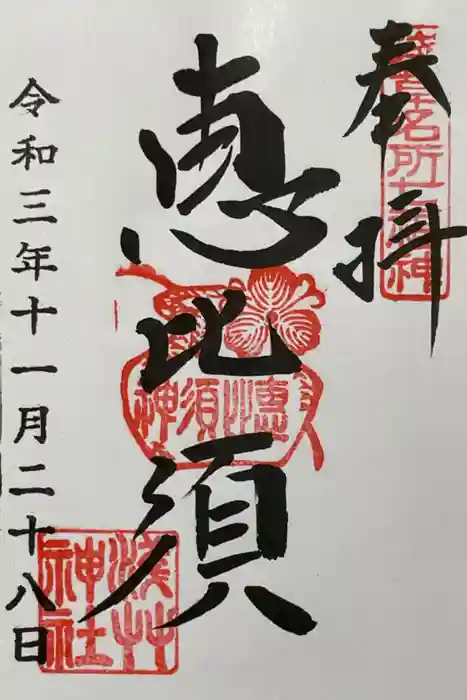 奉拝
浅草名所七福神
恵比須
恵比須神
令和三年十一月二十八日
浅草神社